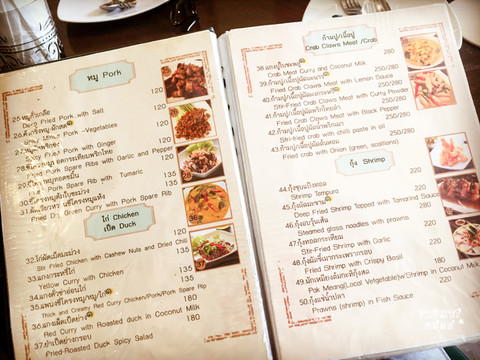 หมู Pork
Deep Fried Pork with Salt
120
120
Spicy Mince Pork -Vegetables
120
Spicy Fried Pork with Ginger
120
Fried Pork Spare Ribs with Garlic and Pepper
135
Pork Spare Rib with Tumaric
135
135
Fried Dry Green Curry with Pork Spare Rib
135
ไก่ Chicken
เป็ด Duck
32.ไก่ผัดเม็ดมะม่วง
135
Stir Fried Chicken with Cashew Nuts and Dried Chili
33.แกงกะหรี่ไก่
135
Yellow Curry with Chicken
135
Thick and Creamy Red Curry Chicken/Pork/Pork Spare Rib
36.แกงเผ็ดเป็ดย่าง
Red Curry with Roasted duck in Coconut Milk
37.ยำเป็ดย่างกรอบ
Fried-Roasted Duck Spicy Salad
ก้ามปู/เนื้อปู
Crab Claws Meat /Crab
38.แกงปูใบชะพลู
280
Crab Meat Curry and Coconut Milk
250/280
Fried Crab Claws Meat with Lemon Sauce
250/280
Stir-Fried Crab Claws Meat with Curry Powder
250/280
Fried Crab Claws Meat with Black Pepper
250/280
Stri-fried crab with chilli paste in oil
250/280
Fried crab with Onion (green, scallions)
กุ้ง Shrimp
44.กุ้งชุบแป้งทอด
220
Shrimp Tempura
45.กุ้งผัดมะขาม
220
Deep Fried Shrimp Topped with Tamarind Sauce
46.กุ้งอบวุ้นเส้น
220
Steamed glass noodles with prawns
47.กุ้งทอดกระเทียม
220
Stir-Fried Shrimp with Garlic
280
Fried Shrimp with Crispy Basil
220
Pak Meang(Local Vetgetable)w/Shrimp in Coconut Milk
50.กุ้งแช่น้ำปลา
220
Prawns (shrimp) in Fish Sauce